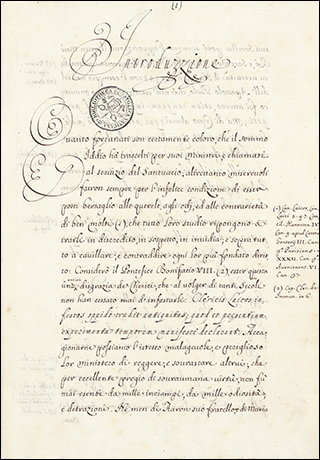 (1)
Introduzzione
Quanto fortunati son certamente coloro, che il sommo
Iddio hà trascelti per suoi Ministri, e chiamati
al servizio del Santuario; altretanto miserevoli
furon sempre per l'infelice condizione di esser
posti bersaglio alle querele, agli odj, ed alle contrarietà
di ben molti (1), che tutto loro studio ripongono a
trarli in discredito, in sospetto, in invidia; e sopra tutto
a cavillare, e contraddire ogni lor più fondato diri-
to: Considerò il Pontefice Bonifatio VIII. (2) esser questa
disgrazia de' Chierici, che al volger di tanti Secoli
non han cessato mai di infestarli: Clericis Laicos in-
festos oppido tradit antiquitas, quod et presentium
experimenta temporum manifeste declarant. Acca-
gionarne possiamo l'istesso malagevole, e periglioso
lor ministero di reggere, e sovrastare altrui; che
per eccellente pregio di sovraumana virtù, non fù
mai esente da mille inciampi, da mille odiosità,
e detrazioni. Ne men di Aaron suo fratello, e di Maria
(2) Cap. Cler. de
Immun. in 6.